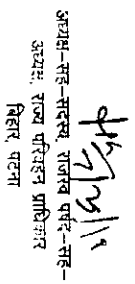 अध्यक्ष-सह-सदस्य, राजस्व पर्षद-सह-
अध्यक्ष, राज्य परिवहन प्राधिकार
बिहार, पटना